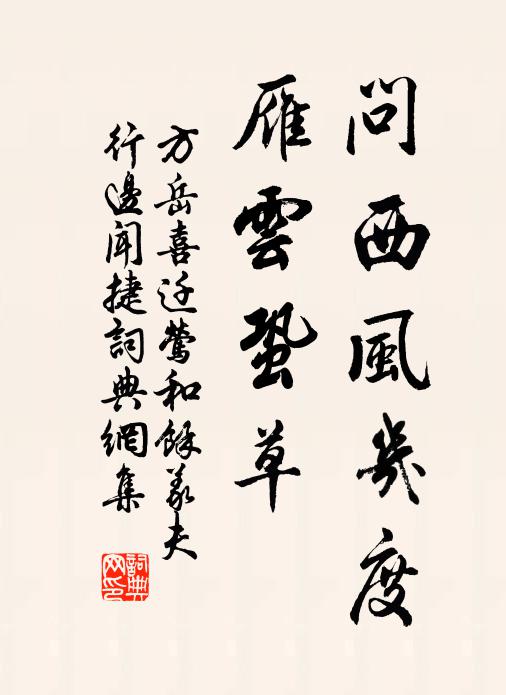 問西風幾度
雁雲蛩草
方岳喜迁鶯和餘義夫
行邊聞捷詞典網集
詞典
网印